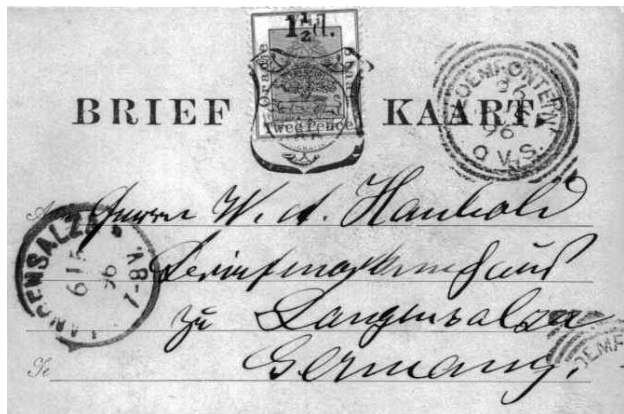 1½d.
Oranje
Twee Pence
BRIEF KAART.
BLOEMFONTEIN
26
96
O.V.S.
Aan Herrn W. A. Haubold
Briefmarkenhaus
zu Langensalza
Te Germany.
LANGENSALZA
6 1
96
7-8 V.
OEMF